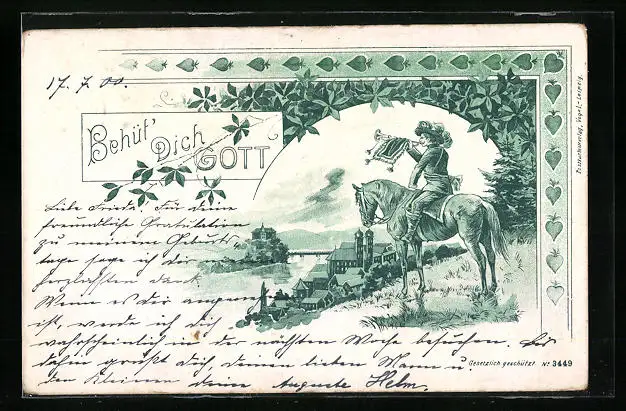 17. 7. 00.
Behüt' Dich GOTT
Liebe Frieda. Für deine
freundliche Gratulation
zu meinem Geburts-
tage sage ich dir
herzlichsten Dank.
Wenn es dir angenehm
ist, werde ich dich
wahrscheinlich in der nächsten Woche besuchen. Bis
dahin grüßt dich, deinen lieben Mann u
den Kleinen deine Auguste Helm.
Gesetzlich geschützt Nº 3449
Postkartenverlag, Vogel, Leipzig.